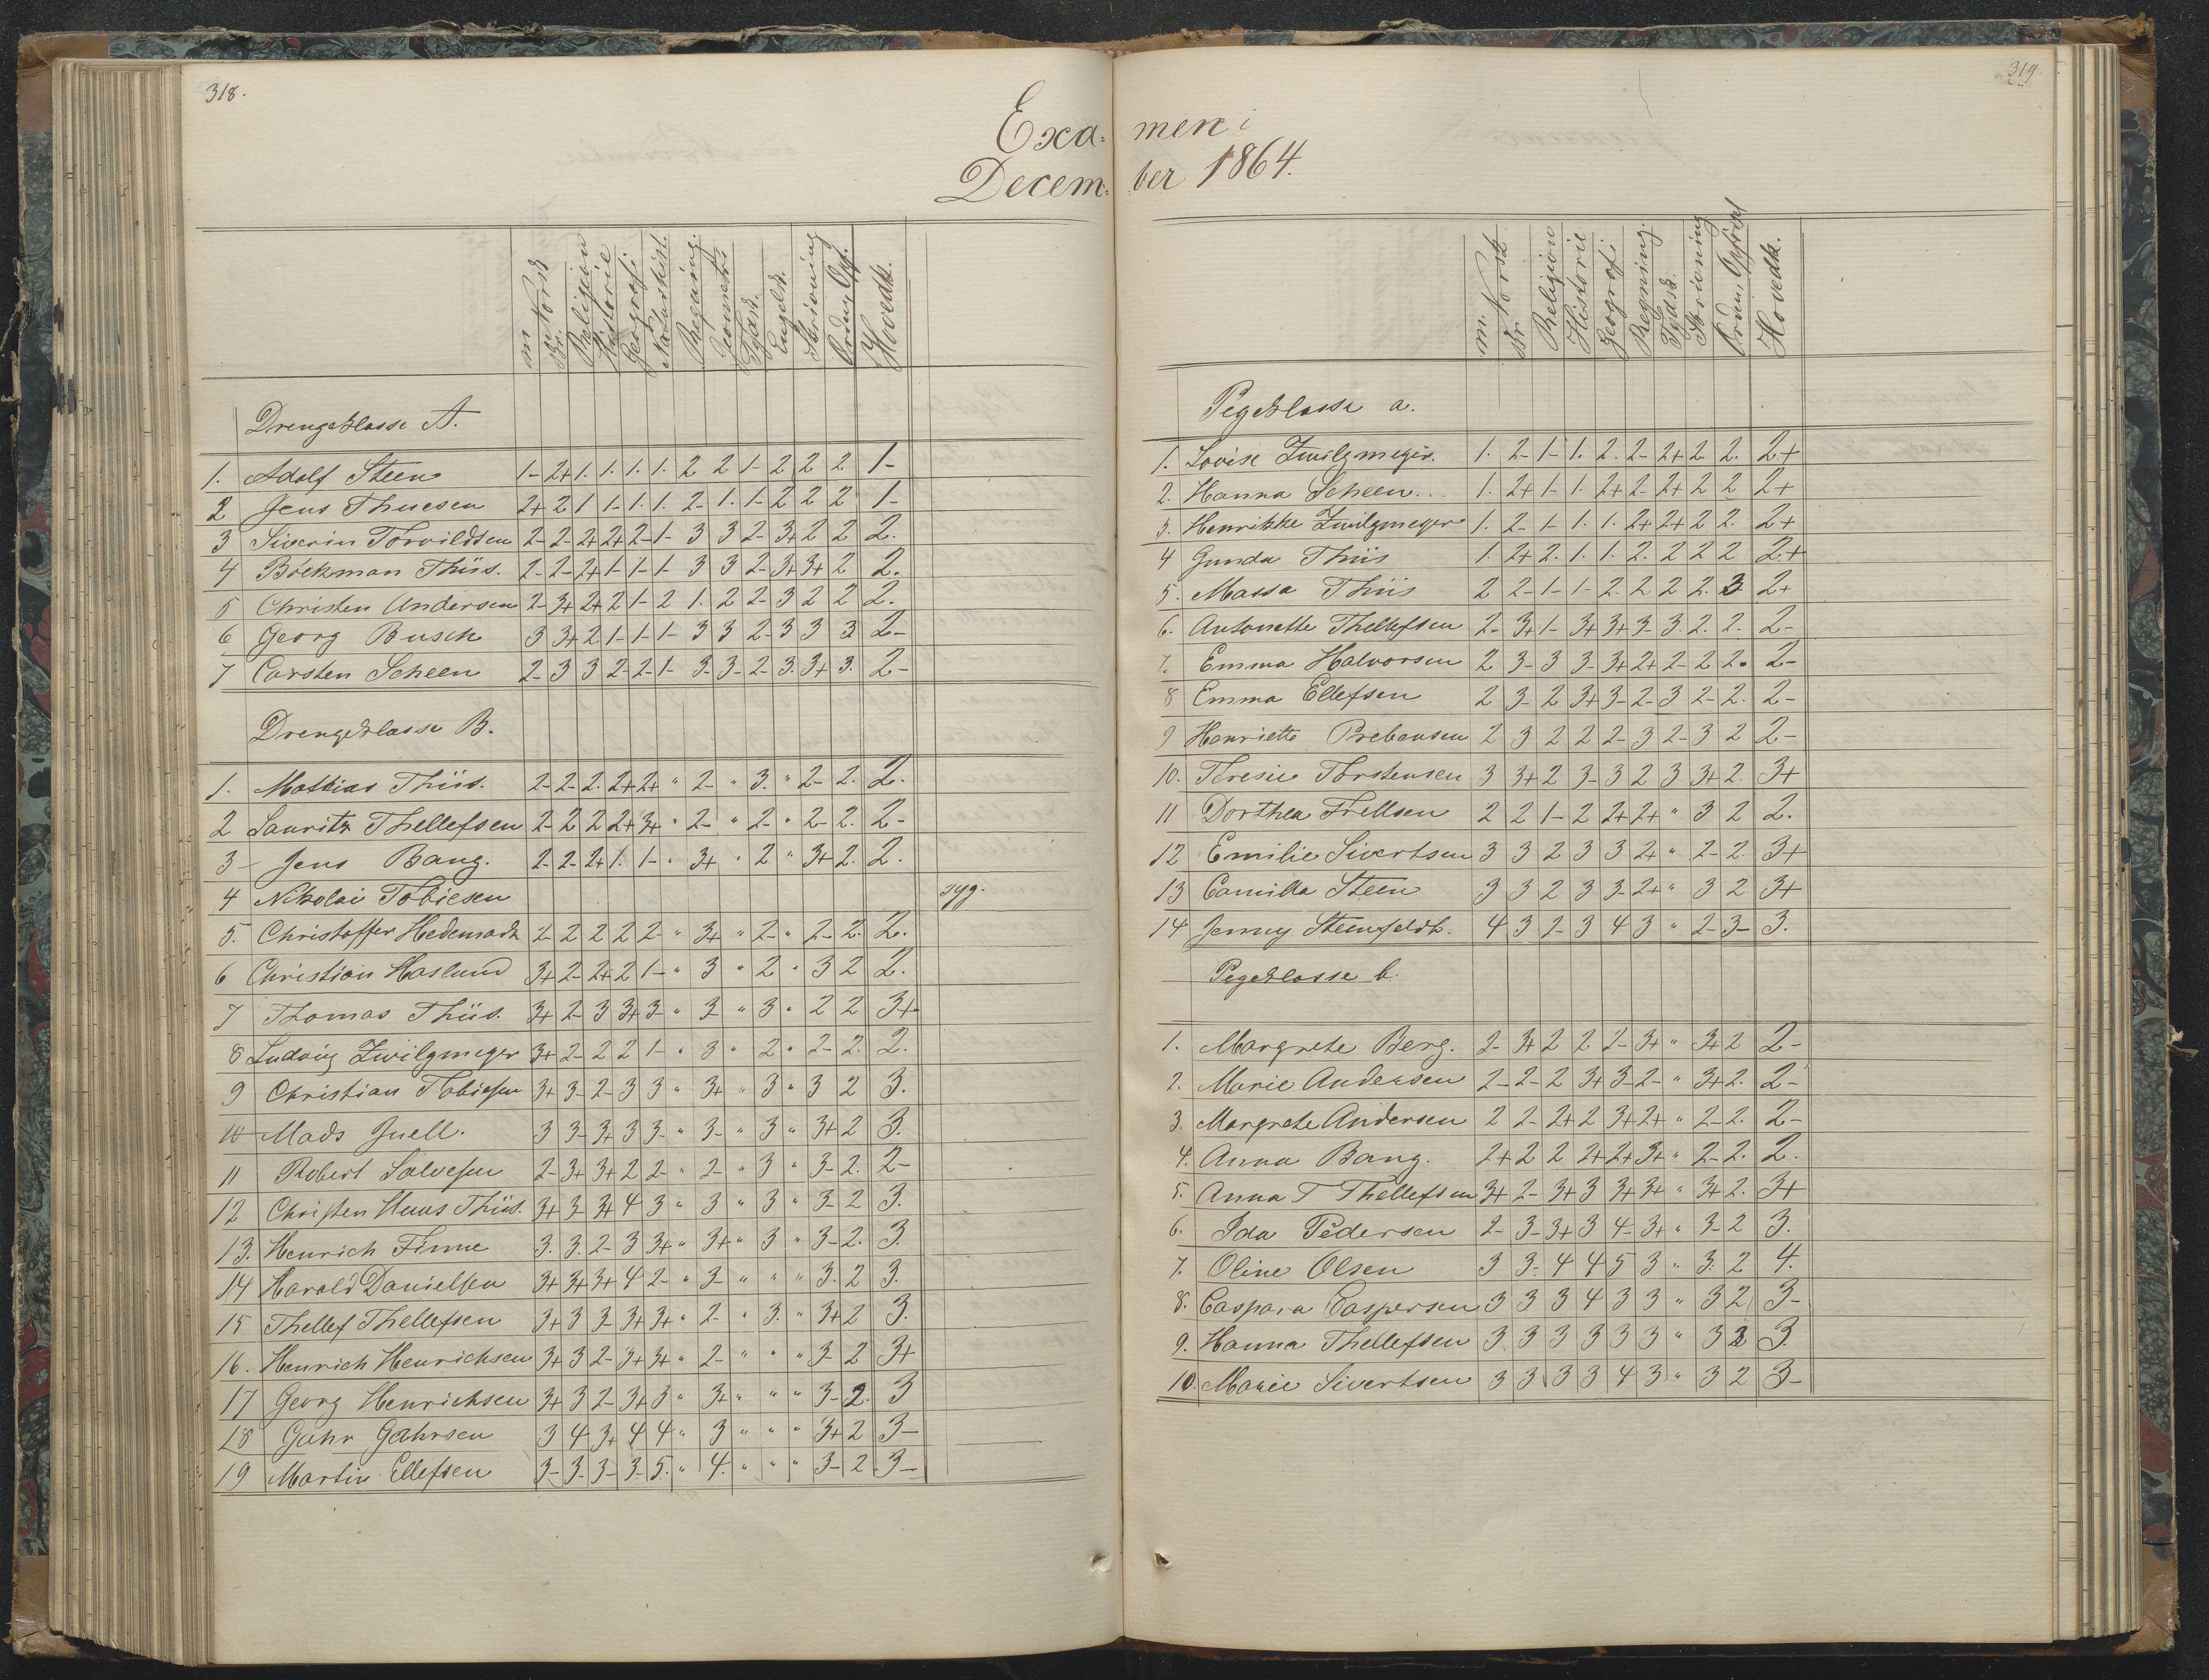 318.
Exa=
Decem=
m Norsk
skr.
Religion
Historie
Geografi
Naturhist.
Regning.
Geometri
Tydsk.
Engelsk.
Skrivning
Orden, Opf.
Hovedk.
Drengeklasse A.
1. Adolf Steen 1- 2+ 1. 1. 1. 1. 2 2 1- 2 2 2 1-
2 Jens Thuesen 2+ 2 1 1- 1. 1. 2- 1. 1- 2 2 2 1-
3 Siverin Torvildsen 2- 2- 2+ 2+ 2- 1- 3 3 2- 3+ 2 2 2.
4 Böckman Thiis. 2- 2- 2+ 1- 1- 1- 3 3 2- 3+ 3+ 2 2.
5 Christen Andersen 2- 3+ 2+ 2 1- 2 1. 2 2- 3 2 2 2.
6 Georg Busch 3 3+ 2 1- 1- 1- 3 3 2- 3 3 3 2-
7 Carsten Scheen 2- 3 3 2- 2- 1- 3- 3- 2- 3. 3+ 3. 2-
Drengeklasse B.
1. Mathias Thiis. 2- 2- 2. 2+ 2+ " 2- " 3. " 2- 2. 2.
2 Lauritz Thellefsen 2- 2 2 2+ 3+ " 2- " 2- " 2- 2. 2-
3 Jens Bang. 2- 2- 2+ 1. 1- " 3+ " 2 " 3+ 2. 2.
4 Nikolai Tobiesen syg.
5. Christoffer Hedemark 2- 2 2 2 2- " 3+ " 2- " 2- 2. 2.
6 Christian Haslund 3+ 2- 2+ 2 1- " 3 " 2 " 3 2 2.
7 Thomas Thiis. 3+ 2- 3 3+ 3- " 3- " 3 " 2 2 3+
8 Ludvig Zwilgmeyer 3+ 2- 2 2 1- " 3 " 2 " 2- 2. 2.
9 Christian Tobiesen 3+ 3- 2- 3 3 " 3+ " 3 " 3 2 3.
10 Mads Juell. 3 3- 3+ 3 3- " 3- " 3 " 3+ 2 3.
11 Robert Salvesen 2- 3+ 3+ 2 2- " 2- " 3 " 3- 2. 2-
12 Christen Huus Thiis. 3+ 3- 3+ 4 3 " 3 " 3 " 3- 2 3.
13. Henrich Finne 3. 3. 2- 3 3+ " 3+ " 3 " 3- 2. 3.
14 Harald Danielsen 3+ 3+ 3+ 4 2- " 3- " " " 3. 2 3.
15 Thellef Thellefsen 3+ 3 3- 3+ 3+ " 2- " 3. " 3+ 2 3.
16. Henrich Henrichsen 3+ 3 2- 3+ 3+ " 2- " " " 3- 2 3+
17 Georg Henrichsen 3+ 3 2- 3+ 3 " 3+ " " " 3- 2. 3
18 Gahr Gahrsen 3 4 3+ 4 4 " 3 " " " 3+ 2 3-
19 Martin Ellefsen 3- 3- 3- 3. 5. " 4. " " " 3- 2 3-
319.
men i
ber 1864.
m. Norsk
skr.
Religion
Historie
Geografi
Regning.
Tydsk.
Skrivning
Orden, Opførsel
Hovedk.
Pigeklasse a.
1. Lovise Zwilgmeyer. 1. 2- 1- 1. 2. 2- 2+ 2 2. 2+
2. Hanna Scheen... 1. 2+ 1- 1. 2+ 2- 2+ 2 2 2+
3. Henrikke Zwilgmeyer 1. 2- 1- 1. 1. 2+ 2+ 2 2. 2+
4 Gunda Thiis 1. 2+ 2. 1. 1. 2. 2 2 2 2+
5. Massa Thiis 2 2- 1- 1- 2. 2 2 2. 3 2+
6. Antonette Thellefsen 2- 3+ 1- 3+ 3+ 3- 3. 2. 2. 2-
7. Emma Halvorsen 2 3- 3 3- 3+ 2+ 2- 2 2. 2-
8 Emma Ellefsen 2 3- 2 3+ 3- 2- 3 2- 2. 2-
9 Henriette Prebensen 2 3 2 2 2- 3 2- 3 2 2-
10. Teresie Torstensen 3 3+ 2 3- 3 2 3 3+ 2. 3+
11 Dorthea Frellsen 2 2 1- 2 2+ 2+ " 3 2 2.
12 Emilie Sivertsen 3 3 2 3 3 2+ " 2- 2. 3+
13 Camilla Steen 3 3 2 3 3- 2+ " 3 2 3+
14 Jenny Steenfeldt. 4 3 2- 3 4 3 " 2- 3- 3.
Pigeklasse b.
1. Margrete Berg. 2- 3+ 2 2 2- 3+ " 3+ 2 2-
2. Marie Andersen 2- 2- 2 3+ 3- 2- " 3+ 2. 2-
3. Margrete Andersen 2 2- 2+ 2 3+ 2+ " 2- 2. 2-
4. Anna Bang. 2+ 2 2 2+ 2+ 3+ " 2- 2. 2.
5. Anna T Thellefsen 3+ 2- 3+ 3 3+ 3+ " 3+ 2. 3+
6. Ida Pedersen 2- 3- 3+ 3 4- 3+ " 3- 2 3.
7. Oline Olsen 3 3. 4 4 5 3 " 3. 2 4.
8. Caspara Caspersen 3 3 3 4 3 3 " 3 2 3-
9. Hanna Thellefsen 3 3 3 3 3 3 " 3 2 3.
10. Marie Sivertsen 3 3 3 3 4 3 " 3 2 3-